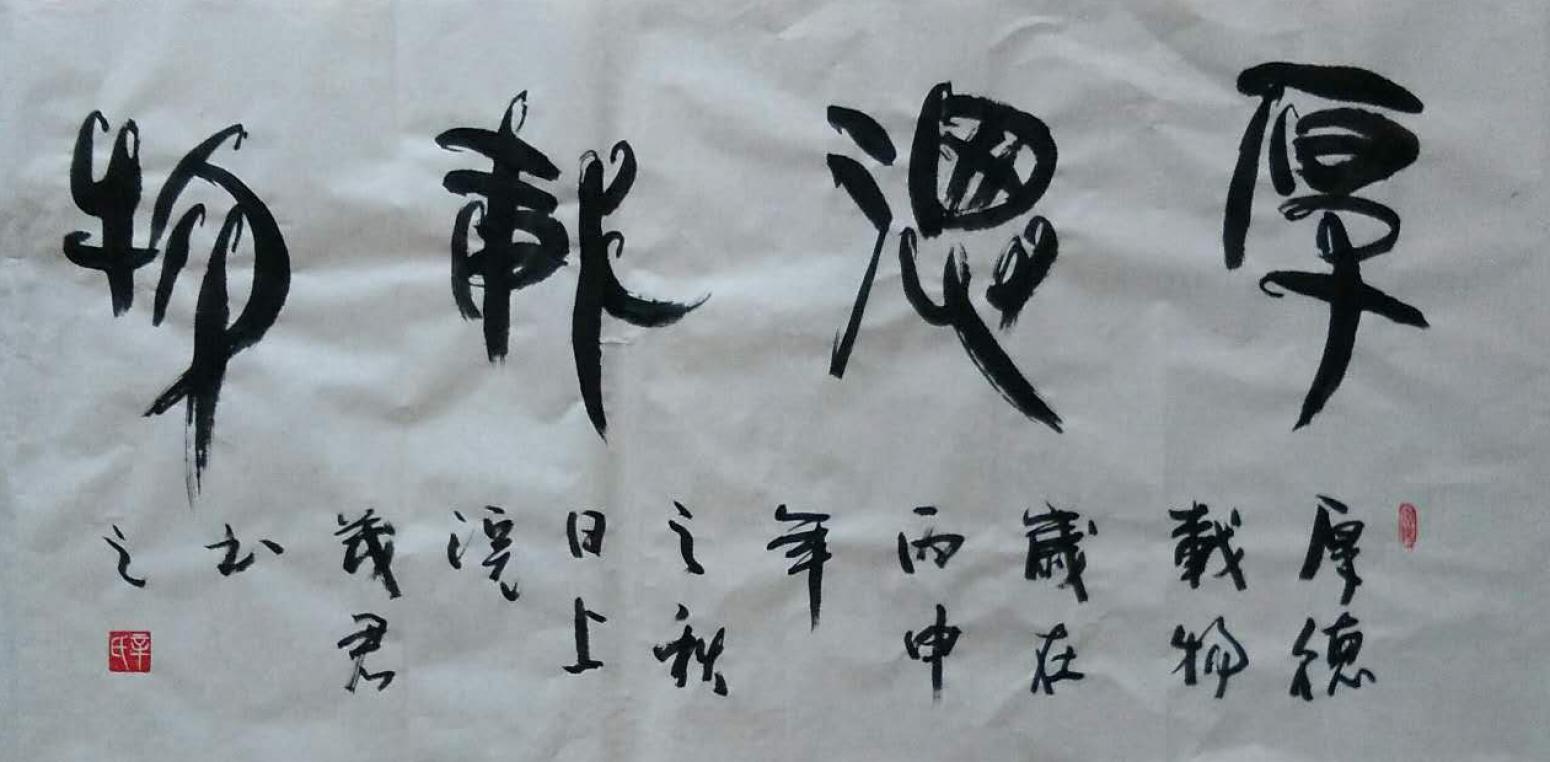 厚德載物
厚德
載物
歲在
丙申
年
之秋
日上
浣
茂君
书
之
辛氏